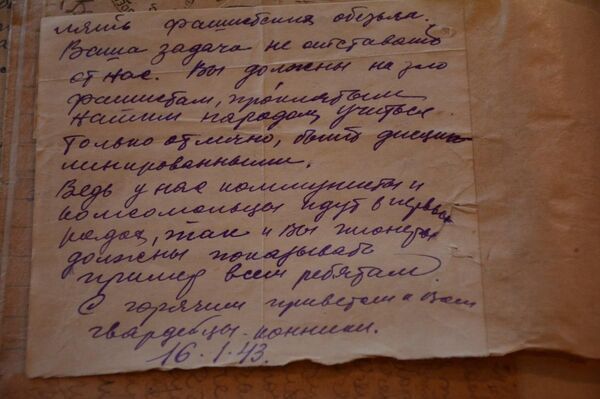 лять фашистских
Ваша задача не отставать
от нас. Вы должны на зло
фашистам, проклятым
нашим народом, учиться
только отлично, быть дисцип-
линированными.
Ведь у нас коммунисты и
комсомольцы идут в первых
рядах, так и Вы пионеры
должны показывать
пример всем ребятам.
С горячим приветом к Вам
гвардейцы-конники.
16.1.43.